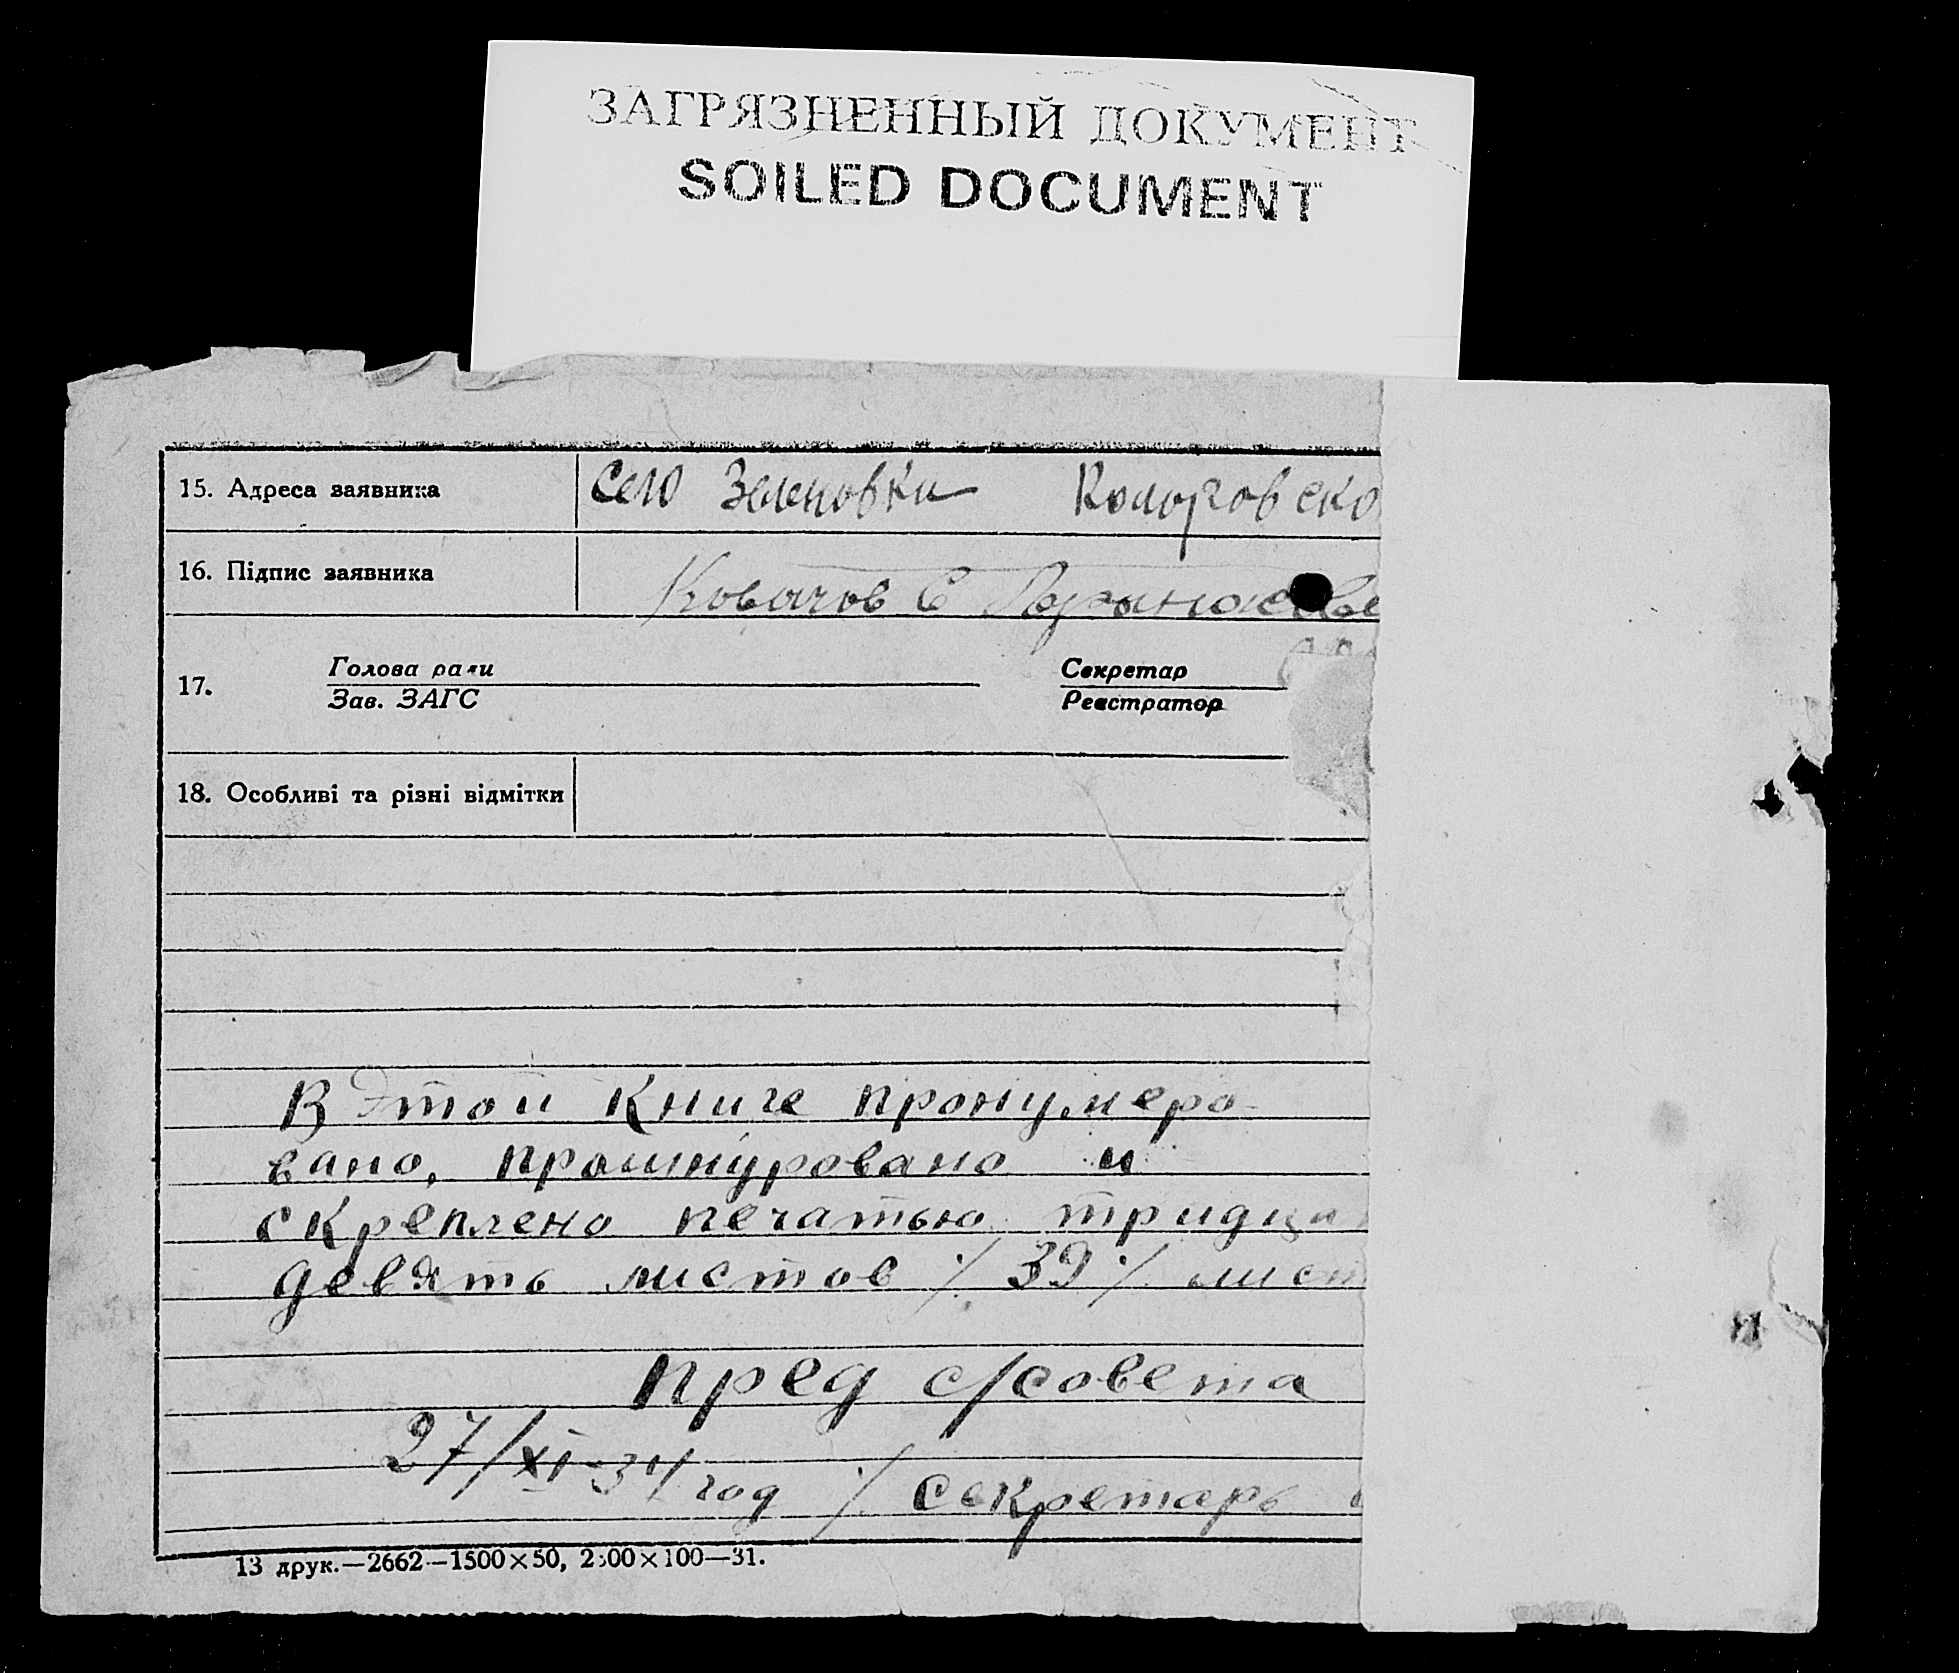 ЗАГРЯЗНЕННЫЙ ДОКУМЕНТ
SOILED DOCUMENT
15. Адреса заявника село Зеленовки
16. Підпис заявника
17. Голова ради Секретар
Зав. ЗАГС Реєстратор
18. Особливі та різні відмітки
В Этой Книге пронумеро-
вано, прошнуровано и
скреплено печатью тридца
девять листов /. 39 /. лист
пред с/совета
27/XI-34 год /. секретарь
13 друк.—2662—1500×50, 2500×100—31.